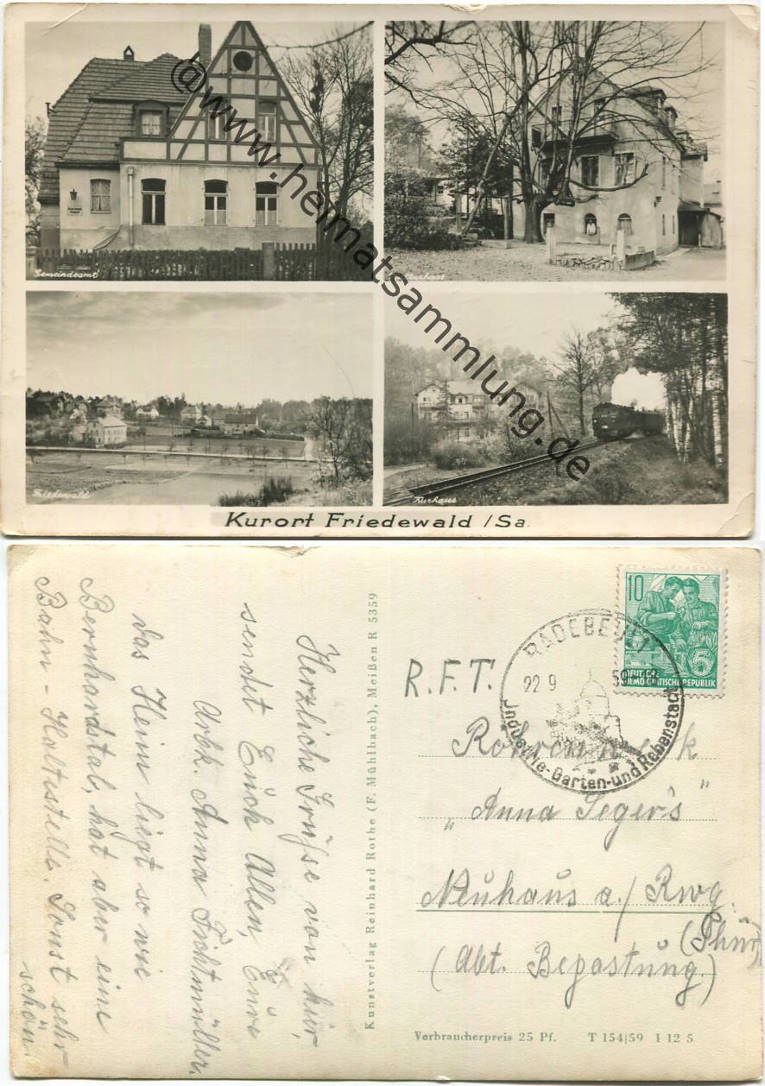 Gemeindeamt
Friedewald
Kurhaus
Kurort Friedewald /Sa.
@www.heimatsammlung.de
Herzliche Grüße von hier
sendet Euch Allen, Eure
Arbk. Anna Fichtmüller.
das Heim liegt so wie
Bernhardstal, hat aber eine
Bahn - Haltestelle. Sonst sehr
schön
Kunstverlag Reinhard Rothe (F. Mühlbach), Meißen R 5359
10
5
DEUTSCHE
DEMOKRATISCHE REPUBLIK
RADEBEUL
22 9
Industrie-Garten-und Rebenstadt
R.F.T.
Röhrenwerk
„Anna Seger's"
Neuhaus a./Rwg.
(Thür)
(Abt. Bepastung.)
Verbraucherpreis 25 Pf. T 154/59 I 12 5